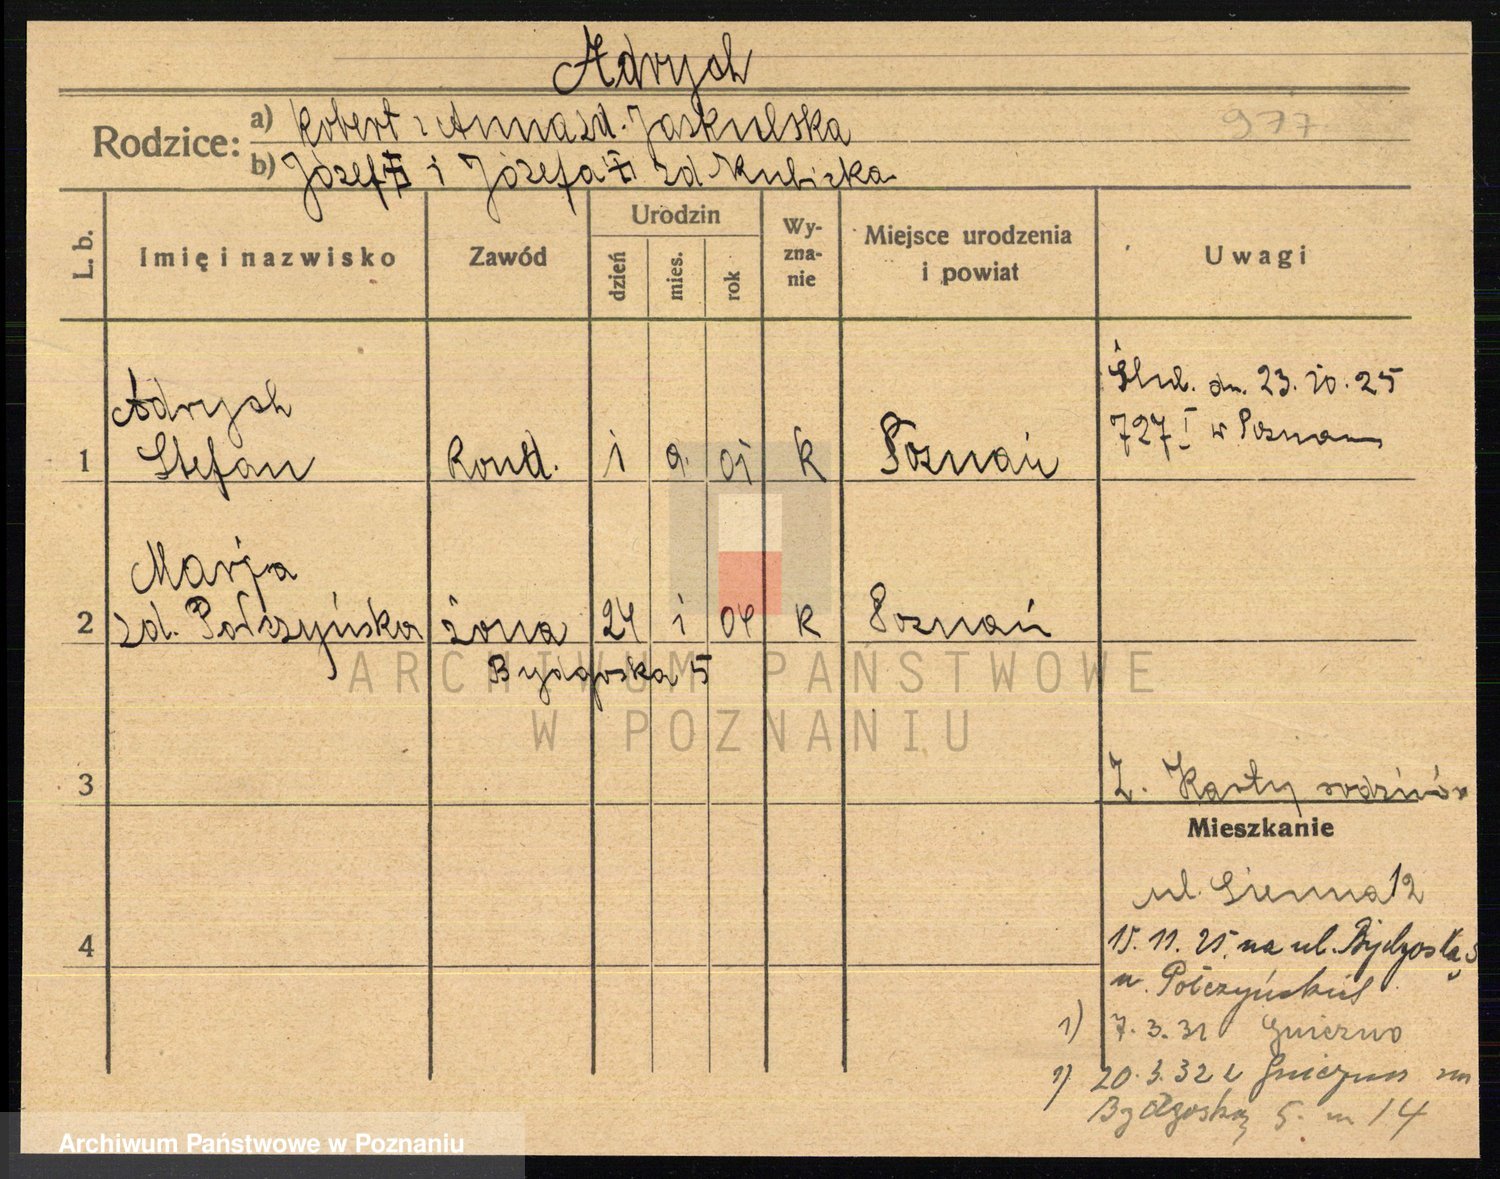 Adrych
977
Rodzice: a) Robert i Anna zd. Jaskulska
b) Józef i Józefa zd Kubicka
L. b.
Imię i nazwisko
Zawód
Urodzin
dzień
mies.
rok
Wy-
zna-
nie
Miejsce urodzenia
i powiat
Uwagi
Adrych
1 Stefan Kond. 1 9. 01 k Poznań
Ślub. dn. 23.10.25
727 I w Poznaniu
Marja
2 zd. Połczyńska żona 24 1 04 k Poznań
Bydgoska 5
3
Z. Karty rodziców
Mieszkanie
4
ul. Sienna 12
15.11.25 na ul. Bydgoską 5
u. Połczyńskich
1) 7.3.31 Gniezno
1) 20.3.32 z Gniezna
Bydgoską 5. m 14
ARCHIWUM PAŃSTWOWE
W POZNANIU
Archiwum Państwowe w Poznaniu